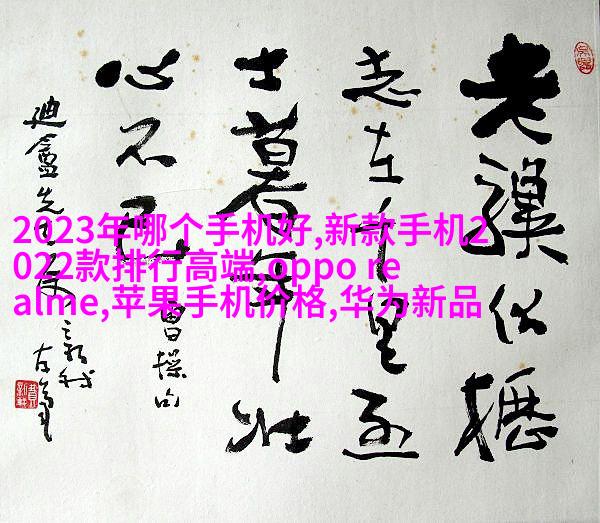 老驥伏櫪
志在千里烈
士暮年壯
心不已
曹操句
迪盦先生
2023年哪个手机好,新款手机2
022款排行高端,oppo re
alme,苹果手机价格,华为新品